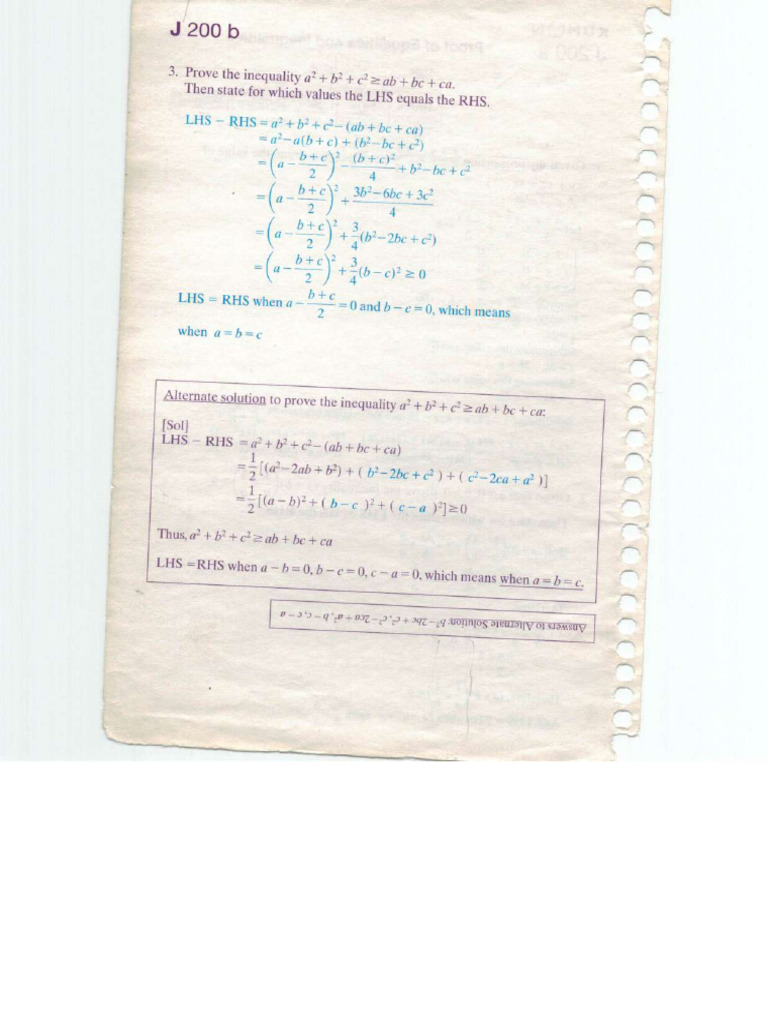 J 200 b
3. Prove the inequality a² + b² + c² ≥ ab + bc + ca.
Then state for which values the LHS equals the RHS.
LHS − RHS = a² + b² + c² − (ab + bc + ca)
= a² − a(b + c) + (b² − bc + c²)
= (a − (b + c)/2)² − (b + c)²/4 + b² − bc + c²
= (a − (b + c)/2)² + (3b² − 6bc + 3c²)/4
= (a − (b + c)/2)² + 3/4(b² − 2bc + c²)
= (a − (b + c)/2)² + 3/4(b − c)² ≥ 0
LHS = RHS when a − (b + c)/2 = 0 and b − c = 0, which means
when a = b = c
Alternate solution to prove the inequality a² + b² + c² ≥ ab + bc + ca:
[Sol]
LHS − RHS = a² + b² + c² − (ab + bc + ca)
= 1/2[(a² − 2ab + b²) + ( b² − 2bc + c² ) + ( c² − 2ca + a² )]
= 1/2[(a − b)² + ( b − c )² + ( c − a )²] ≥ 0
Thus, a² + b² + c² ≥ ab + bc + ca
LHS = RHS when a − b = 0, b − c = 0, c − a = 0, which means when a = b = c.
Answers to Alternate Solution: b² − 2bc + c², c² − 2ca + a², b − c, c − a